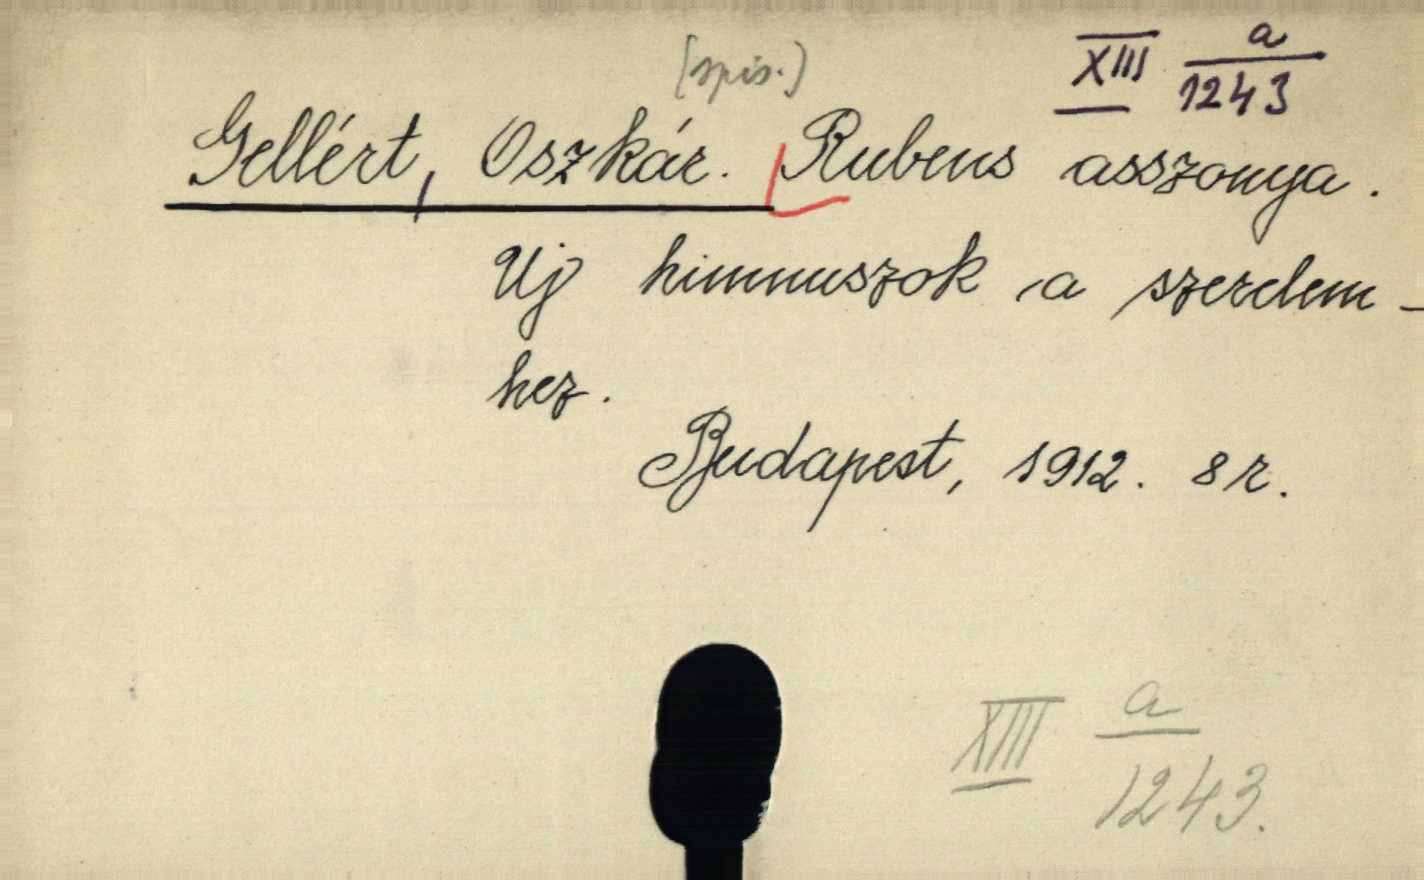 (spis.)
XIII a
1243
Gellért, Oszkár. Rubens asszonya.
Uj himnuszok a szerelem-
hez.
Budapest, 1912. 8r.
XIII a
1243.